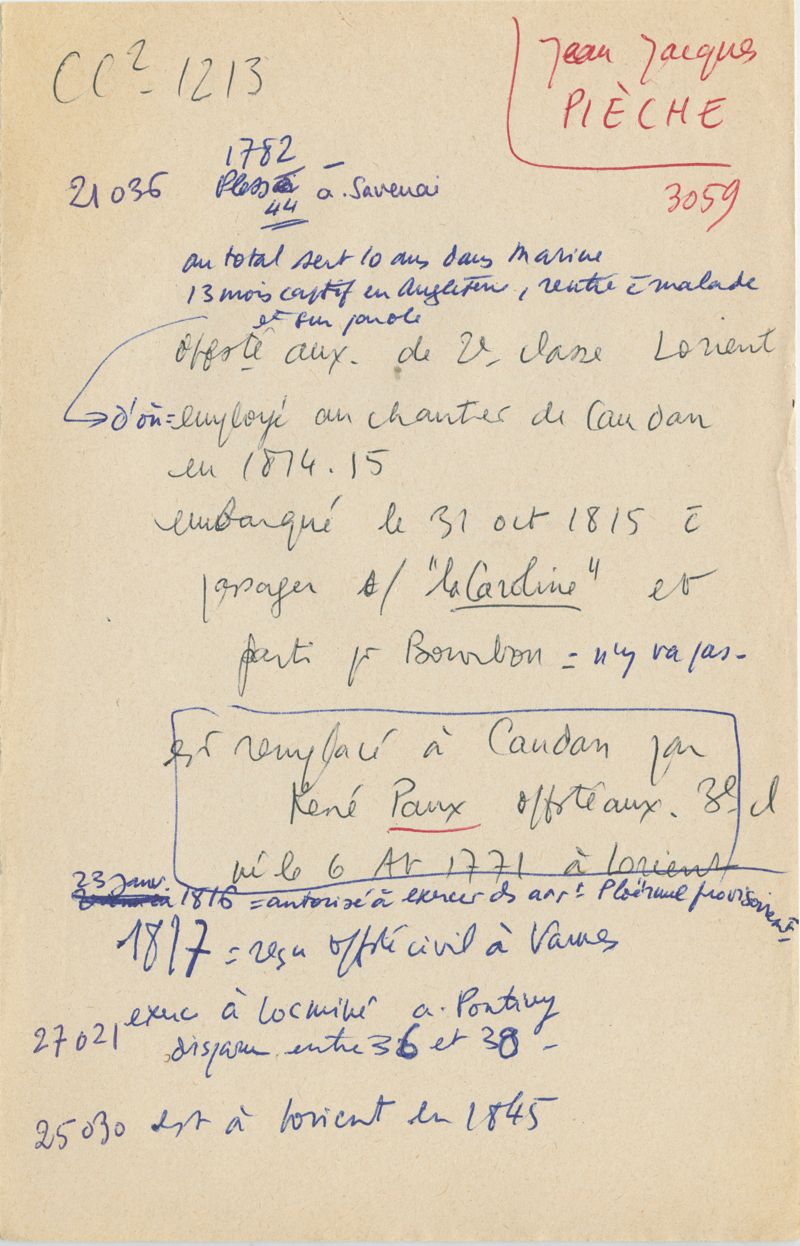 CC² - 1213
Jean Jacques
PIÈCHE
3059
1782
21036 Plessé a. Savenai
44
au total sert 10 ans dans Marine
13 mois captif en Angleterre, rentre c̄ malade
et sur parole
Offsté aux. de 2e classe Lorient
d'où = employé au chantier de Caudan
en 1814.15
embarqué le 31 oct 1815 c̄
passager s/ "la Caroline" et
parti pr Bourbon = n'y va pas -
est remplacé à Caudan par
René Paux offsté aux. 3e cl
né le 6 Av 1771 à Lorient
23 janv.
1816 = autorisé à exercer ds arrt Ploërmel provisoirement
1817 = reçu offsté civil à Vannes
exerc à Locminé a. Pontivy
27021 disparu entre 36 et 38 -
25030 est à Lorient en 1845